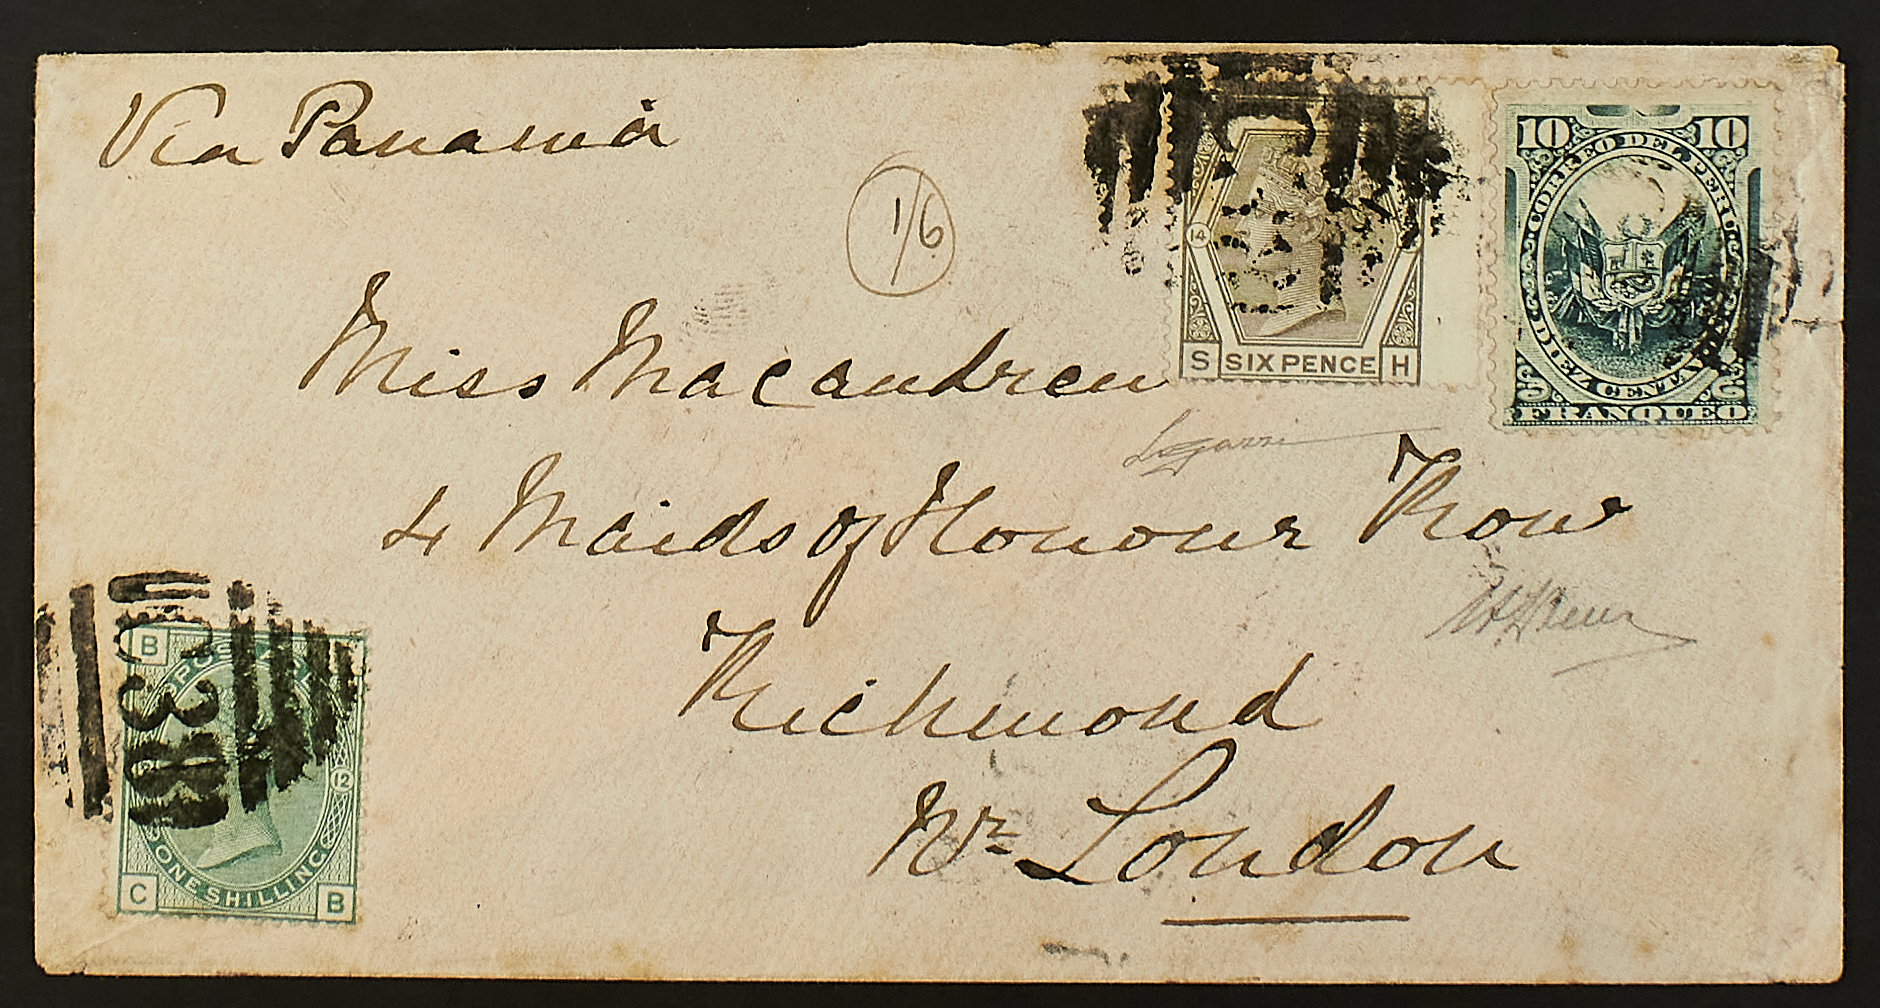 Via Panamá
1/6
Miss Macandrew
4 Maids of Honour Row
Richmond
Nr London
14
S SIX PENCE H
10 10
CORREO DEL PERU
DIEZ CENTAVOS
FRANQUEO
B
C38
12
ONE SHILLING
C B